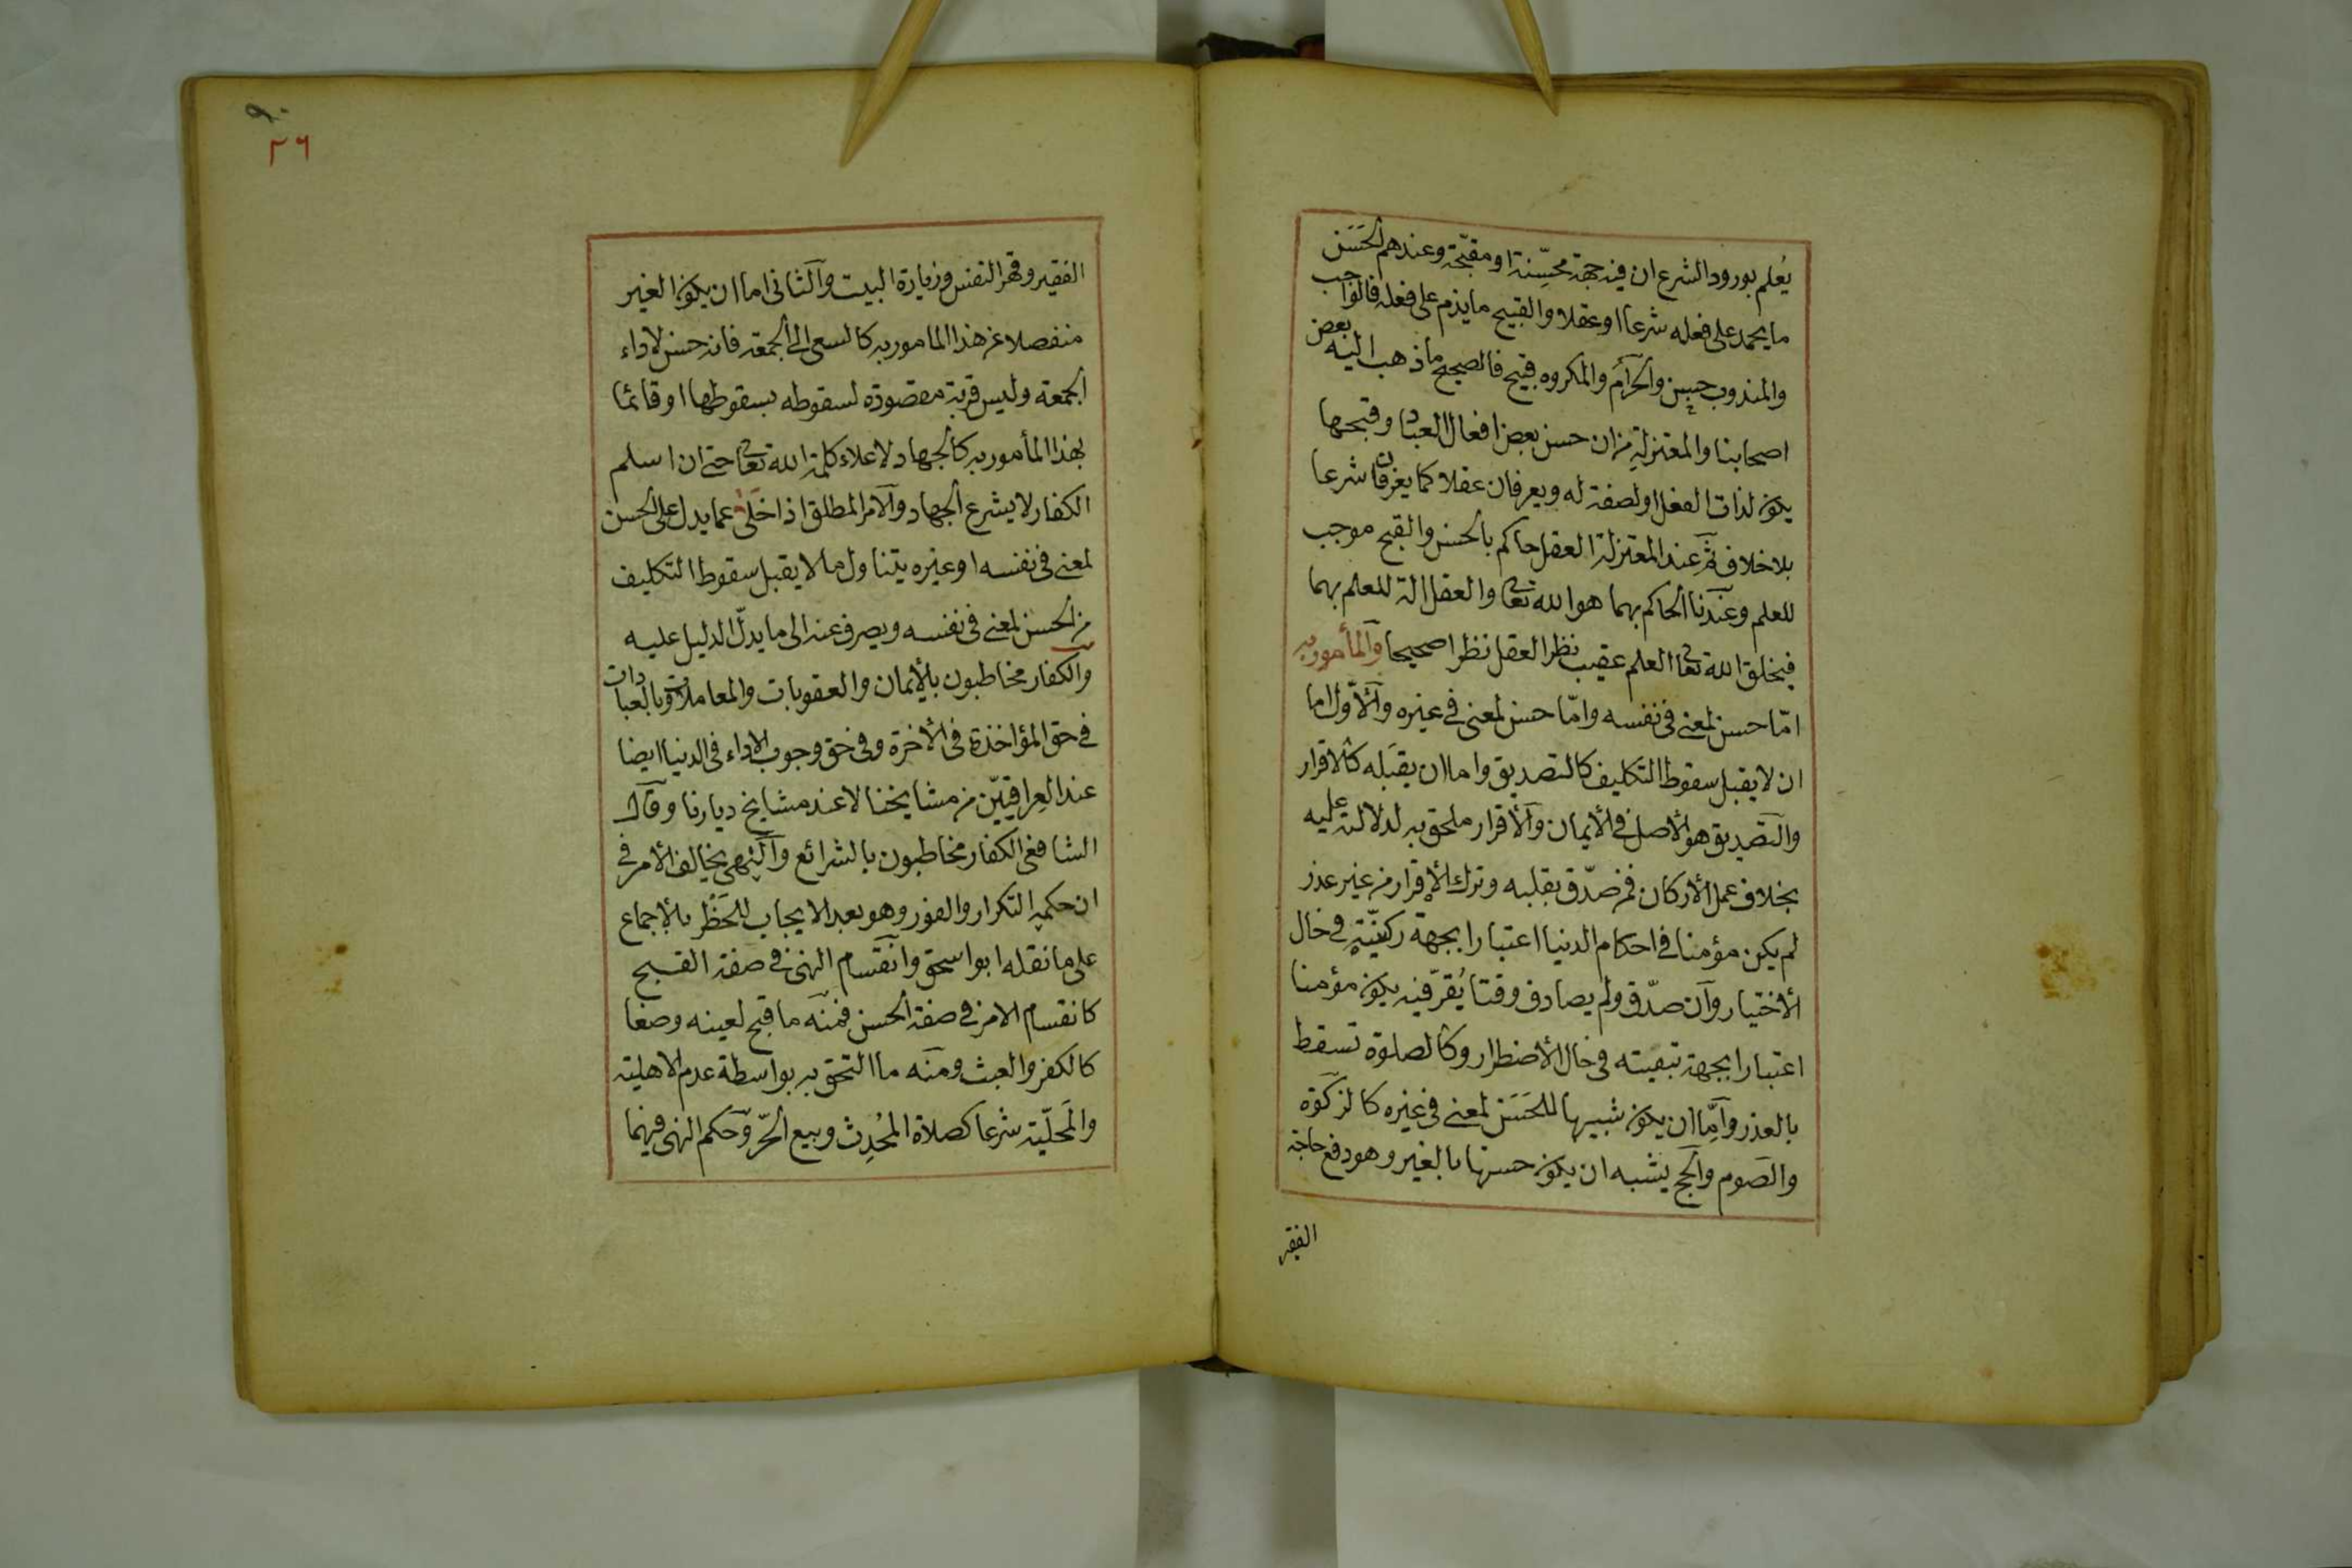 يُعلم بورود الشرع ان فيه جهة محسِّنة او مقبّحة وعندهم الحَسَن
ما يحمد على فعله شرعا او عقلا والقبيح ما يذم على فعله فالواجب
والمندوب حسن والحرام والمكروه قبيح فالصحيح ما ذهب اليه بعض
اصحابنا والمعتزلة من ان حسن بعض افعال العباد وقبحها
يكون لذات الفعل او لصفة له ويعرفان عقلا كما يعرفان شرعا
بلا خلاف ثم عند المعتزلة العقل حاكم بالحسن والقبح موجب
للعلم وعندنا الحاكم بهما هو الله تعالى والعقل الة للعلم بهما
فيخلق الله تعالى العلم عقيب نظر العقل نظرا صحيحا والمأمور به
امّا حسن لمعنى فى نفسه وامّا حسن لمعنى فى غيره والأوّل اما
ان لا يقبل سقوط التكليف كالتصديق واما ان يقبله كالاقرار
والتصديق هو الأصل فى الأيمان والأقرار ملحق به لدلالته عليه
بخلاف عمل الأركان فمن صدّق بقلبه وترك الأقرار من غير عذر
لم يكن مؤمنا فى احكام الدنيا اعتبارا بجهة ركنيّته فى حال
الأختيار وان صدّق ولم يصادف وقتا يُقرّ فيه يكون مؤمنا
اعتبارا بجهة تبعيته فى حال الأضطرار وكالصلوة تسقط
بالعذر وامّا ان يكون شبيها للحَسَن لمعنى فى غيره كالزكوة
والصوم والحج يشبه ان يكون حسنها بالغير وهو دفع حاجة
الفقير
٢٦
الفقير وقهر النفس وزيارة البيت والثانى اما ان يكون الغير
منفصلا عن هذا المامور به كالسعى الى الجمعة فانه حسن لاداء
الجمعة وليس قربة مقصودة لسقوطه بسقوطها او قائما
بهذا المأمور به كالجهاد لاعلاء كلمة الله تعالى حتى ان اسلم
الكفار لا يشرع الجهاد والامر المطلق اذا خلى عما يدل على الحسن
لمعنى فى نفسه او غيره يتناول ما لا يقبل سقوط التكليف
من الحسن لمعنى فى نفسه ويصرف عنه الى ما يدلّ الدليل عليه
والكفار مخاطبون بالأيمان والعقوبات والمعاملات وبالعبادات
فى حق المؤاخذة فى الأخرة وفى حق وجوب الاداء فى الدنيا ايضا
عند العِراقيّين من مشايخنا لا عند مشايخ ديارنا وقال
الشافعى الكفار مخاطبون بالشرائع والنهى يخالف الأمر فى
ان حكمه التكرار والفور وهو بعد الايجاب للحَظْر بالإجماع
على ما نقله ابو اسحق وانقسام النهى فى صفة القبح
كانقسام الامر فى صفة الحسن فمنه ما قبح لعينه وصفا
كالكفر والعبث ومنه ما التحق به بواسطة عدم الاهلية
والمَحلّية شرعا كصلاة المُحدِث وبيع الحرّ وحكم النهى فيهما